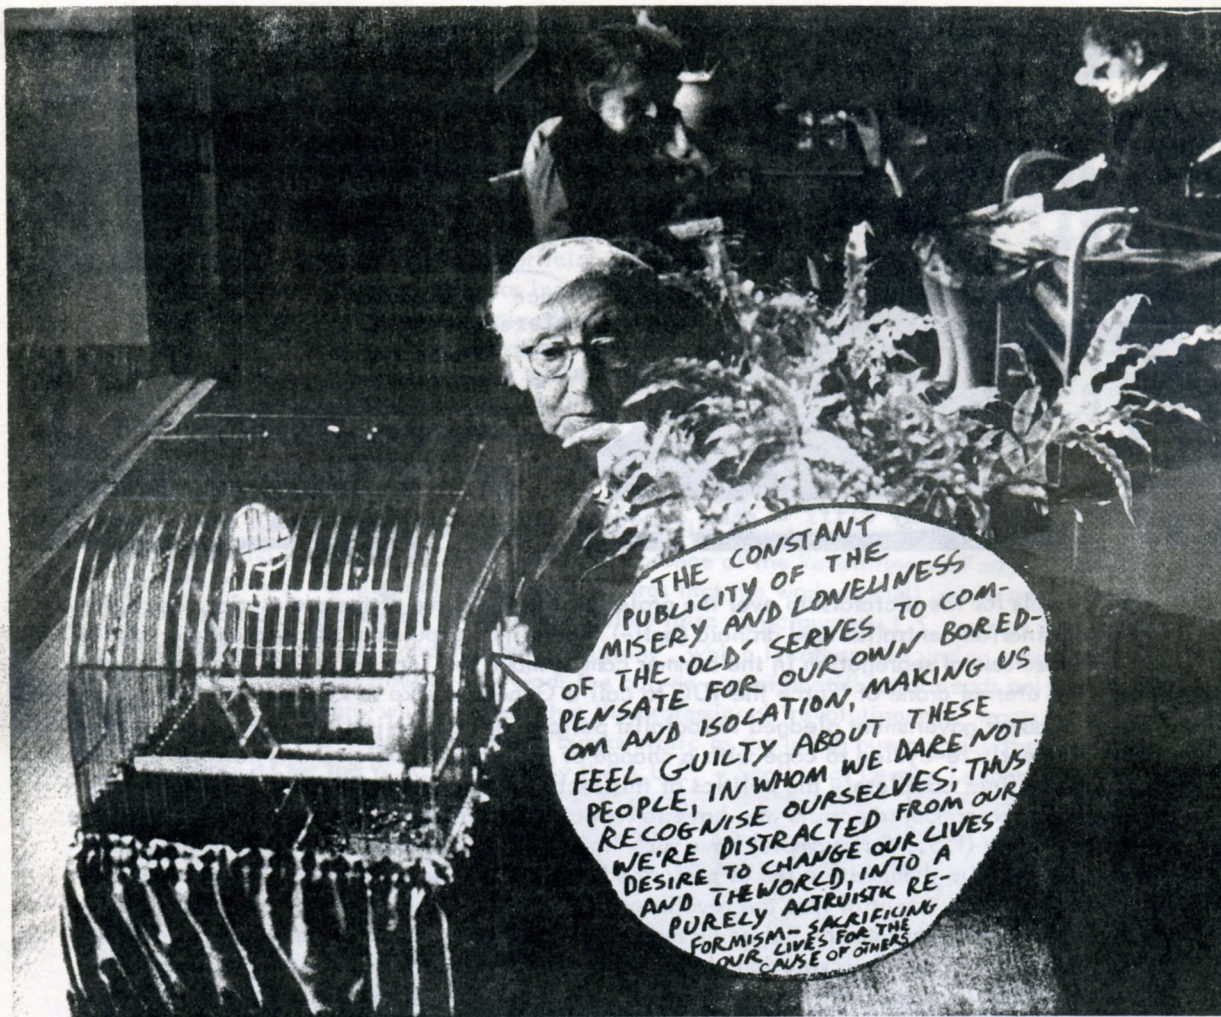 THE CONSTANT
PUBLICITY OF THE
MISERY AND LONELINESS
OF THE 'OLD' SERVES TO COM-
PENSATE FOR OUR OWN BORED-
OM AND ISOLATION, MAKING US
FEEL GUILTY ABOUT THESE
PEOPLE, IN WHOM WE DARE NOT
RECOGNISE OURSELVES; THUS
WE'RE DISTRACTED FROM OUR
DESIRE TO CHANGE OUR LIVES
AND THE WORLD, INTO A
PURELY ALTRUISTIC RE-
FORMISM - SACRIFICING
OUR LIVES FOR THE
CAUSE OF OTHERS